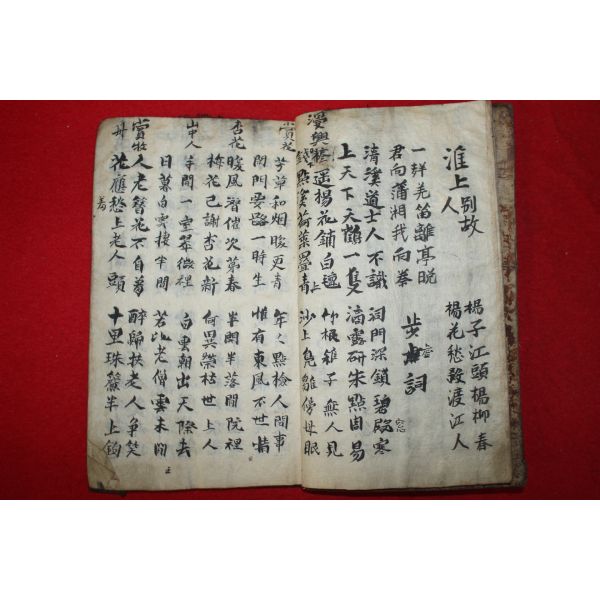 淮上別故人
楊子江頭楊柳春
楊花愁殺渡江人
一羌笛離亭晩
君向蒲湘我向秦
步虛詞
清溪道士人不識
上天下天鶴一隻
洞門深鎖碧窓寒
滴露研朱點周易
漫興
楊花鋪白
點溪荷葉疊青
根稚子無人見
沙上鳧雛傍母眠
賞花
芳草和烟暖更青
閑門要路一時生
年之點檢人間事
惟有東風不世情
杏花
暖風次第春
梅花已謝杏花新
半開半落閒院裡
何異榮枯世上人
山中人
千間一室翠微裡
日暮白雲棲半間
白雲朝出天際去
若比老僧雲未閒
賞牧丹
人老簪花不自羞
花應愁上老人頭
醉歸扶老人爭笑
十里珠簾半上鉤